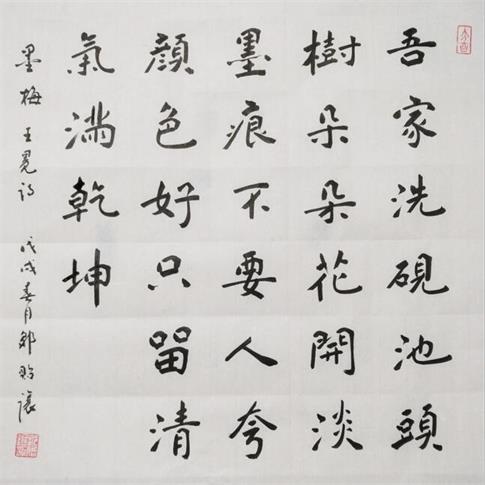 吾家洗硯池頭
樹朵朵花開淡
墨痕不要人夸
顔色好只留清
氣滿乾坤
墨梅 王冕诗 戊戌春月